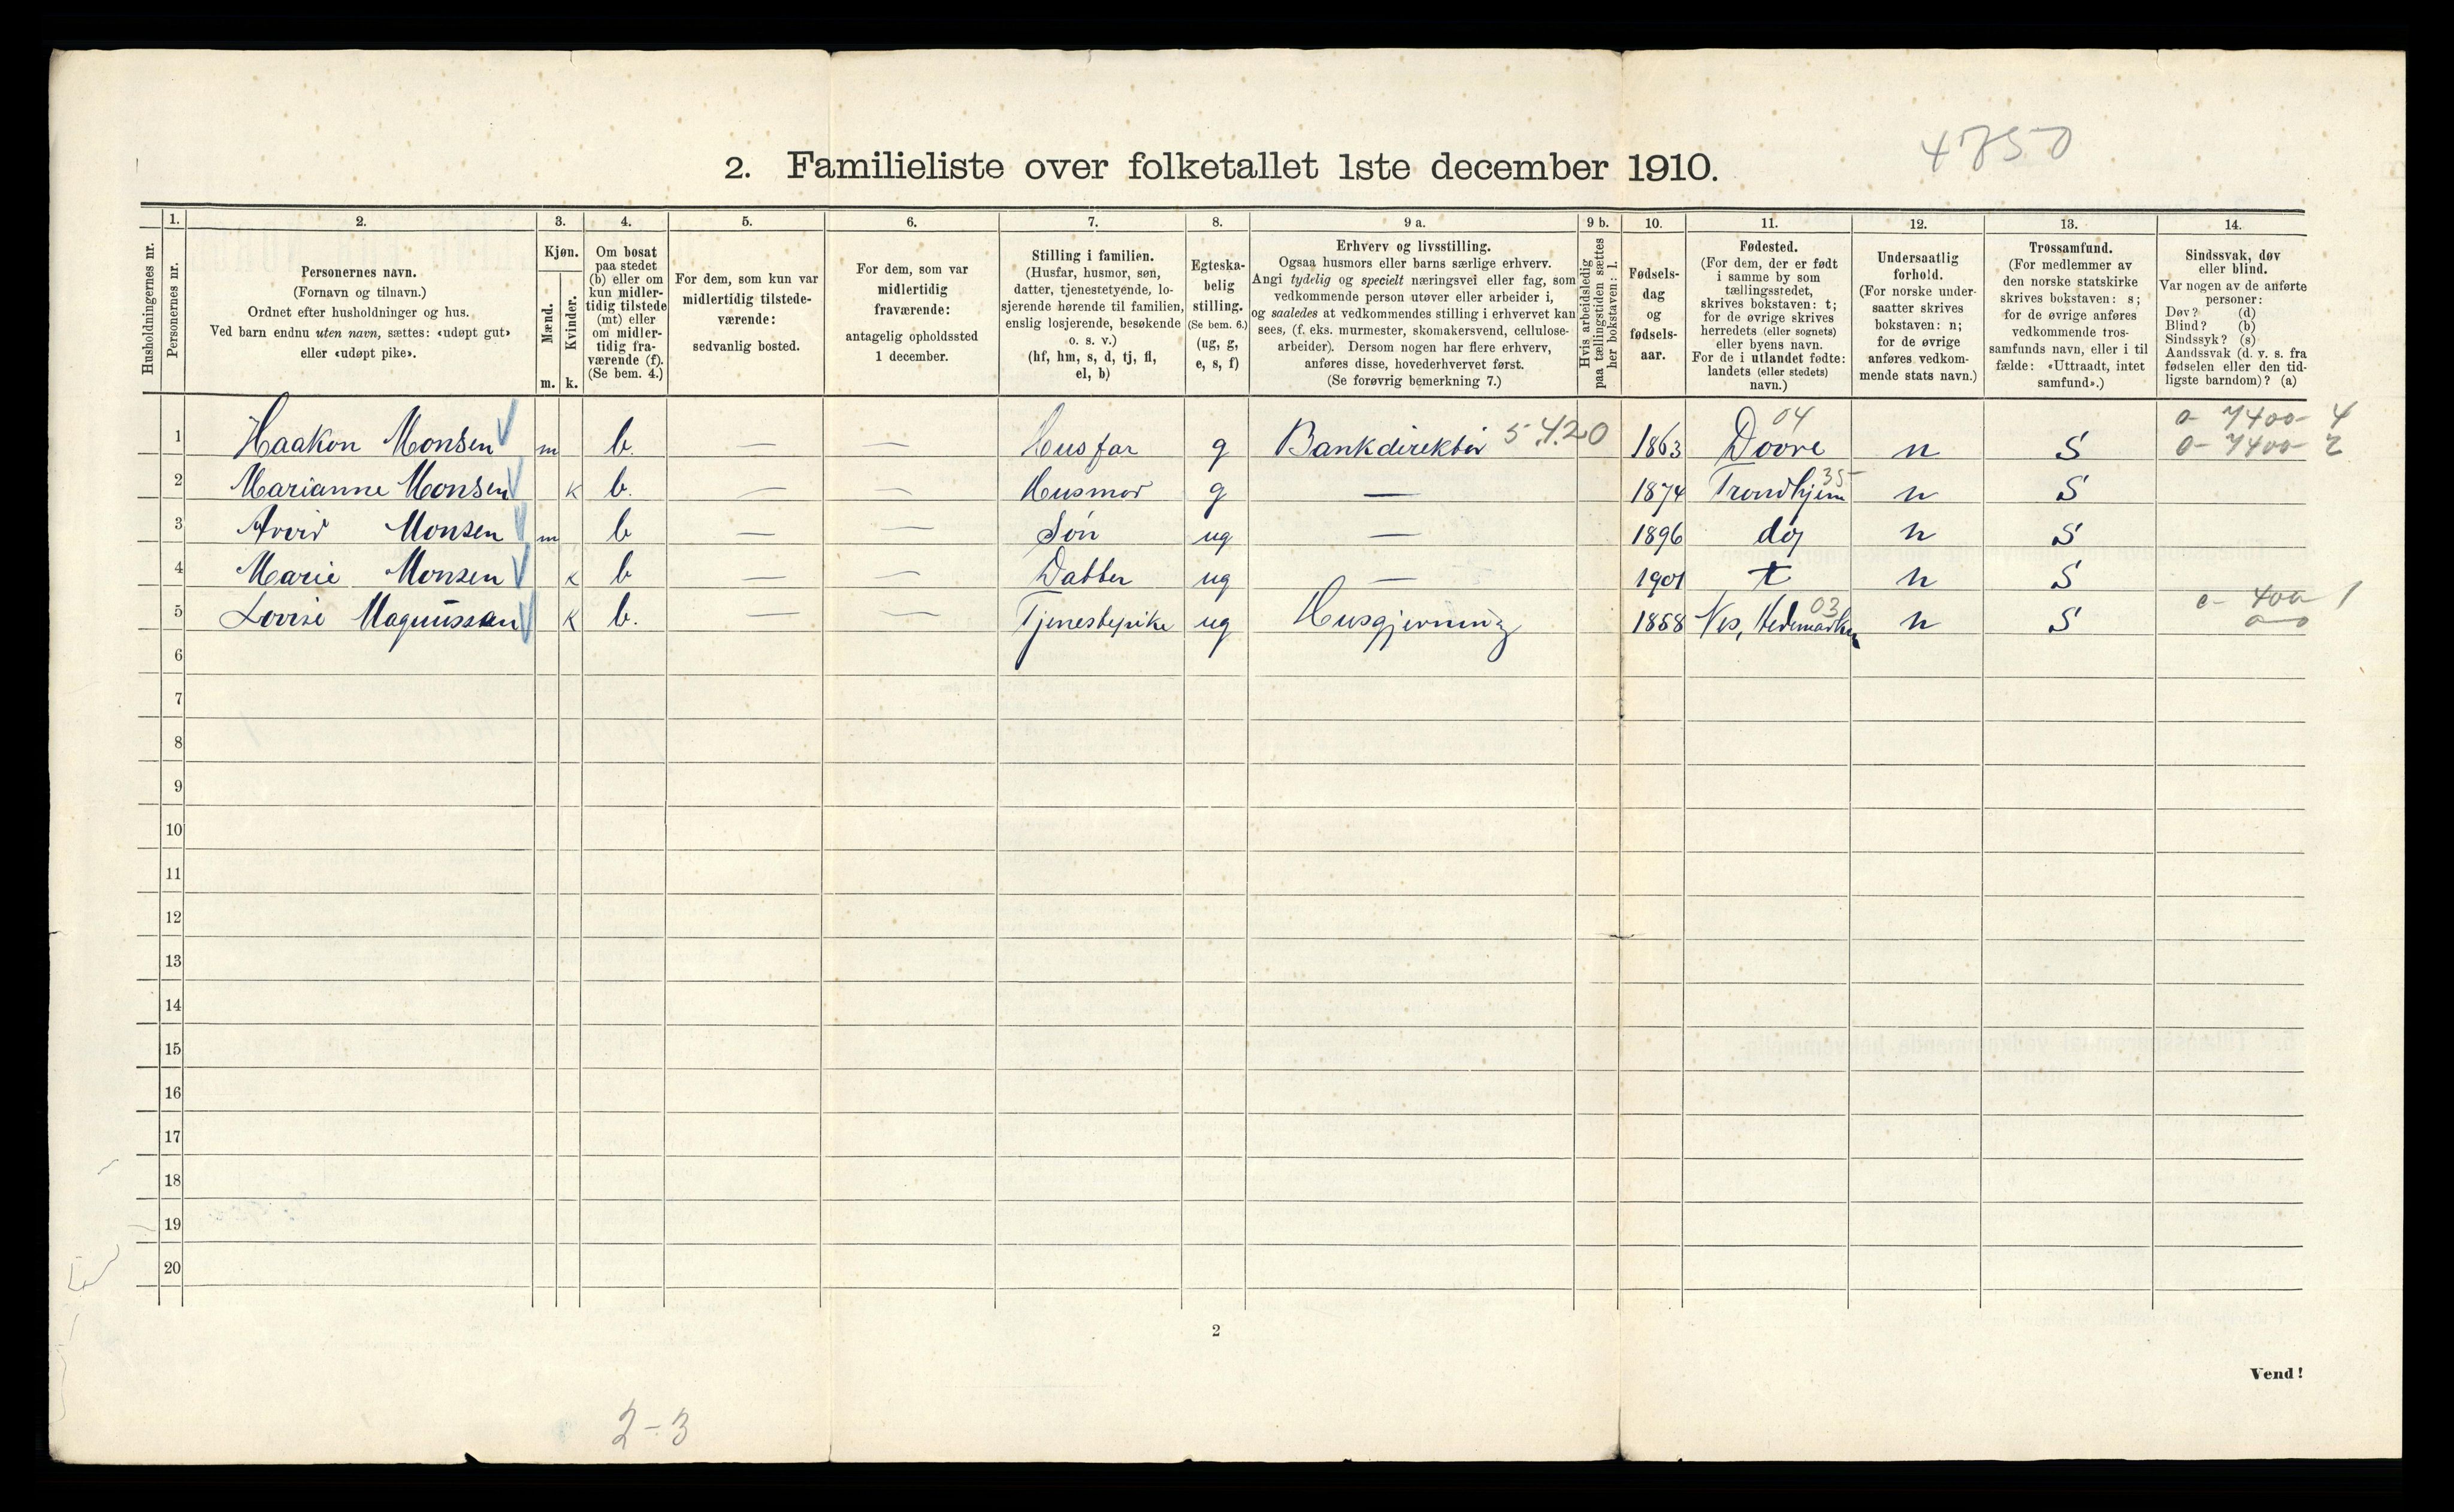 4750
2. Familieliste over folketallet 1ste december 1910.
Husholdningernes nr.
1.
Personernes nr.
2.
Personernes navn.
(Fornavn og tilnavn.)
Ordnet efter husholdninger og hus.
Ved barn endnu uten navn, sættes: «udøpt gut»
eller «udøpt pike».
3.
Kjøn.
Mænd.
Kvinder.
m. k.
4.
Om bosat
paa stedet
(b) eller om
kun midler-
tidig tilstede
(mt) eller
om midler-
tidig fra-
værende (f).
(Se bem. 4.)
5.
For dem, som kun var
midlertidig tilstede-
værende:
sedvanlig bosted.
6.
For dem, som var
midlertidig
fraværende:
antagelig opholdssted
1 december.
7.
Stilling i familien.
(Husfar, husmor, søn,
datter, tjenestetyende, lo-
sjerende hørende til familien,
enslig losjerende, besøkende
o. s. v.)
(hf, hm, s, d, tj, fl,
el, b)
8.
Egteska-
belig
stilling.
(Se bem. 6.)
(ug, g,
e, s, f)
9 a.
Erhverv og livsstilling.
Ogsaa husmors eller barns særlige erhverv.
Angi tydelig og specielt næringsvei eller fag, som
vedkommende person utøver eller arbeider i,
og saaledes at vedkommendes stilling i erhvervet kan
sees, (f. eks. murmester, skomakersvend, cellulose-
arbeider). Dersom nogen har flere erhverv,
anføres disse, hovederhvervet først.
(Se forøvrig bemerkning 7.)
9 b.
Hvis arbeidsledig
paa tællingstiden sættes
her bokstaven: l.
10.
Fødsels-
dag
og
fødsels-
aar.
11.
Fødested.
(For dem, der er født
i samme by som
tællingsstedet,
skrives bokstaven: t;
for de øvrige skrives
herredets (eller sognets)
eller byens navn.
For de i utlandet fødte:
landets (eller stedets)
navn.)
12.
Undersaatlig
forhold.
(For norske under-
saatter skrives
bokstaven: n;
for de øvrige
anføres vedkom-
mende stats navn.)
13.
Trossamfund.
(For medlemmer av
den norske statskirke
skrives bokstaven: s;
for de øvrige anføres
vedkommende tros-
samfunds navn, eller i til
fælde: «Uttraadt, intet
samfund».)
14.
Sindssvak, døv
eller blind.
Var nogen av de anførte
personer:
Døv? (d)
Blind? (b)
Sindssyk? (s)
Aandssvak (d. v. s. fra
fødselen eller den tid-
ligste barndom)? (a)
04 0- 7400- 4
1 Haakon Monsen m b. — — Husfar g Bankdirektør 5.4.20 1863 Dovre n S 0- 7400- 2
2 Marianne Monsen k b. — — Husmor g — 1874 Trondhjem 35 n S
3 Arvid Monsen m b — — Søn ug — 1896 do n S
4 Marie Monsen k b — — Datter ug — 1901 t n S
5 Lovise Magnussen k b. — — Tjenestepike ug Husgjerning 1858 Nes, Hedemarken 03 n S 400 1
6
7
8
9
10
11
12
13
14
15
16
17
18
19
20
2
Vend!
2-3